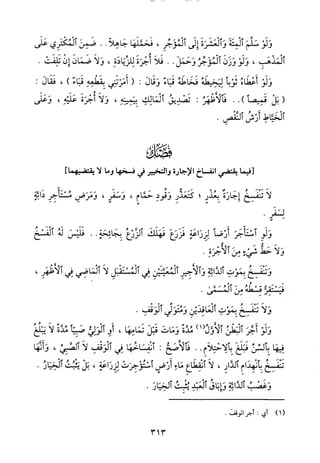 وَلَوْ سَلَّمَ الْمِئَةَ وَالْعَشَرَةَ إِلَى الْمُؤَجِّرِ ، فَحَمَّلَهَا جَاهِلاً.. ضَمِنَ الْمُكْتَرِي عَلَى
الْمَذْهَبِ ، وَلَوْ وَزَنَ الْمُؤَجِّرُ وَحَمَّلَ.. فَلاَ أُجْرَةَ لِلزِّيَادَةِ ، وَلاَ ضَمَانَ إِنْ تَلِفَتْ .
وَلَوْ أَعْطَاهُ ثَوْباً لِيَخِيطَهُ فَخَاطَهُ قَبَاءً وَقَالَ : ( أَمَرْتَنِي بِقَطْعِهِ قَبَاءً ) ، فَقَالَ :
( بَلْ قَمِيصاً ).. فَالأَظْهَرُ : تَصْدِيقُ الْمَالِكِ بِيَمِينِهِ ، وَلاَ أُجْرَةَ عَلَيْهِ ، وَعَلَى
الْخَيَّاطِ أَرْشُ النَّقْصِ .
فَصْلٌ
[فيما يقتضي انفساخ الإجارة والتخيير في فسخها وما لا يقتضيهما]
لاَ تَنْفَسِخُ إِجَارَةٌ بِعُذْرٍ ؛ كَتَعَذُّرِ وَقُودِ حَمَّامٍ ، وَسَفَرٍ ، وَمَرَضِ مُسْتَأْجِرِ دَابَّةٍ
لِسَفَرٍ .
وَلَوِ اسْتَأْجَرَ أَرْضاً لِزِرَاعَةٍ فَزَرَعَ فَهَلَكَ الزَّرْعُ بِجَائِحَةٍ.. فَلَيْسَ لَهُ الْفَسْخُ
وَلاَ حَطُّ شَيْءٍ مِنَ الأُجْرَةِ .
وَتَنْفَسِخُ بِمَوْتِ الدَّابَّةِ وَالأَجِيرِ الْمُعَيَّنَيْنِ فِي الْمُسْتَقْبَلِ لاَ الْمَاضِي فِي الأَظْهَرِ ،
فَيَسْتَقِرُّ قِسْطُهُ مِنَ الْمُسَمَّى .
وَلاَ تَنْفَسِخُ بِمَوْتِ الْعَاقِدَيْنِ وَمُتَوَلِّي الْوَقْفِ .
وَلَوْ أَجَّرَ الْبَطْنُ الأَوَّلُ(١) مُدَّةً وَمَاتَ قَبْلَ تَمَامِهَا ، أَوِ الْوَلِيُّ صَبِيّاً مُدَّةً لاَ يَبْلُغُ
فِيهَا بِالسِّنِّ فَبَلَغَ بِالاِحْتِلاَمِ.. فَالأَصَحُّ : انْفِسَاخُهَا فِي الْوَقْفِ لاَ الصَّبِيِّ ، وَأَنَّهَا
تَنْفَسِخُ بِانْهِدَامِ الدَّارِ ، لاَ انْقِطَاعِ مَاءِ أَرْضٍ اسْتُؤْجِرَتْ لِزِرَاعَةٍ ، بَلْ يَثْبُتُ الْخِيَارُ .
وَغَصْبُ الدَّابَّةِ وَإِبَاقُ الْعَبْدِ يُثْبِتُ الْخِيَارَ .
(١) أي : أجر الوقف .
٣١٣